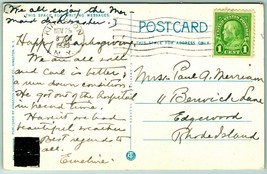 (We all enjoy the Mer-
maid dishwasher.)
THIS SPACE FOR WRITING MESSAGES
POSTCARD
Happy Thanksgiving,
We are all well
and Carl is better;
a run down condition.
He got out of the hospital
in record time.
Haven't we had
beautiful weather
Best regards to
all.
Emeline
Mrs. Paul A. Merriam
11 Berwick Lane
Edgewood
Rhode Island
1 CENT 1